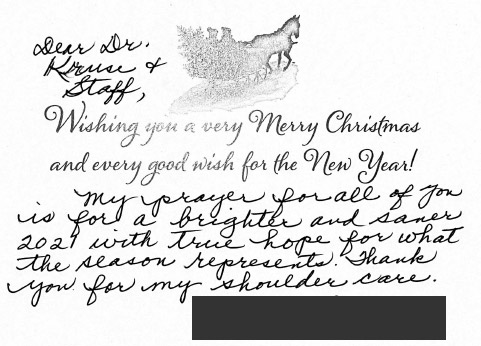 Dear Dr.
Kruse &
Staff,
Wishing you a very Merry Christmas
and every good wish for the New Year!
My prayer for all of you
is for a brighter and saner
2021 with true hope for what
the season represents. Thank
you for my shoulder care.